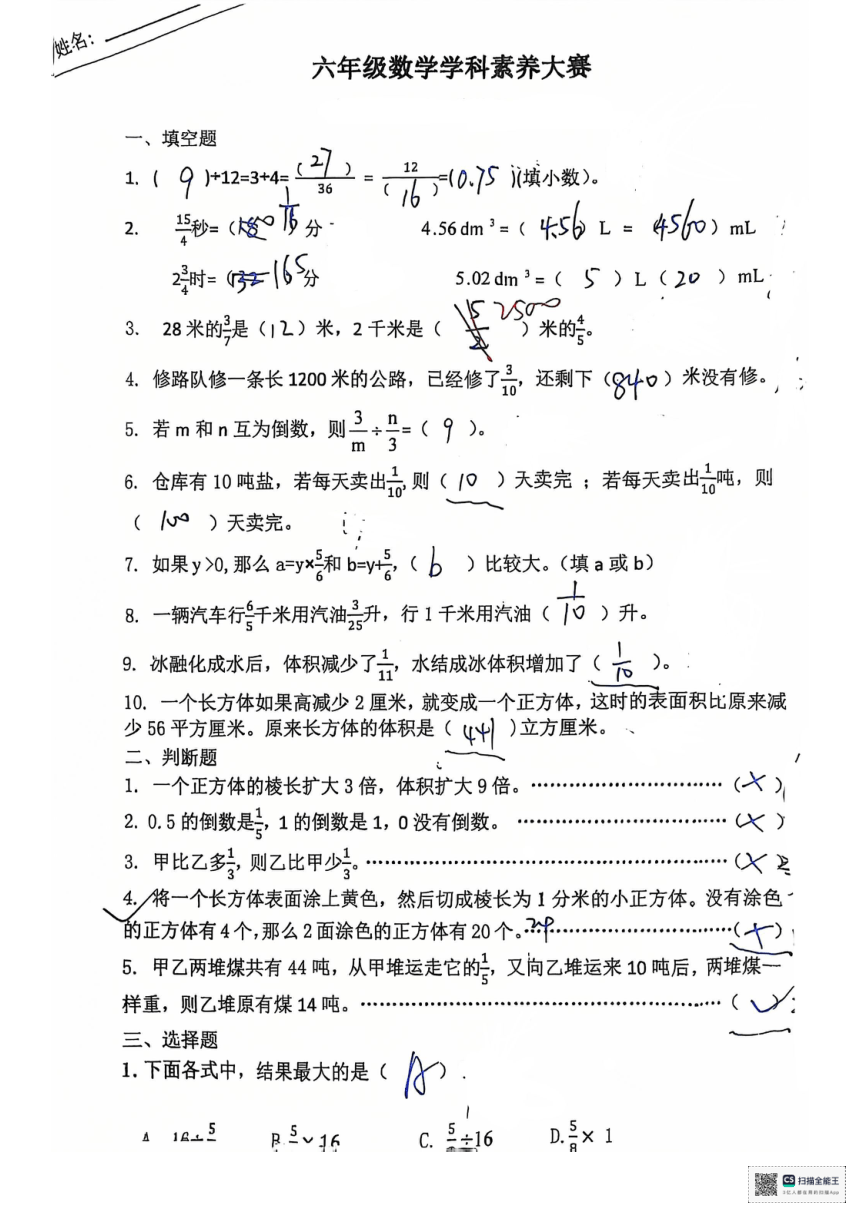 姓名：
六年级数学学科素养大赛
一、填空题
1. ( 9 )÷12=3÷4=( 27 )/36 = 12/( 16 )=(0.75)(填小数)。
2. 15/4秒=( 1/16 分 4.56 dm ³ = ( 4.56 ) L = ( 4560 ) mL
2 3/4时=( 165分 5.02 dm ³ = ( 5 ) L ( 20 ) mL
3. 28 米的3/7是（12）米，2 千米是（ 5/2 2500 ）米的4/5。
4. 修路队修一条长 1200 米的公路，已经修了3/10，还剩下（840）米没有修。
5. 若 m 和 n 互为倒数，则3/m÷n/3=（ 9 ）。
6. 仓库有 10 吨盐，若每天卖出1/10,则（ 10 ）天卖完 ；若每天卖出1/10吨，则
（ 100 ）天卖完。
7. 如果y >0,那么 a=y×5/6和 b=y÷5/6,（ b ）比较大。（填 a 或 b）
8. 一辆汽车行6/5千米用汽油3/25升，行 1 千米用汽油（ 1/10 ）升。
9. 冰融化成水后，体积减少了1/11，水结成冰体积增加了（ 1/10 ）。
10. 一个长方体如果高减少 2 厘米，就变成一个正方体，这时的表面积比原来减
少 56 平方厘米。原来长方体的体积是（ 441 ）立方厘米。
二、判断题
1. 一个正方体的棱长扩大 3 倍，体积扩大 9 倍。……………………（×）
2. 0.5 的倒数是1/5，1 的倒数是 1，0 没有倒数。……………………（×）
3. 甲比乙多1/3, 则乙比甲少1/3。……………………（×
4. 将一个长方体表面涂上黄色，然后切成棱长为 1 分米的小正方体。没有涂色
的正方体有 4 个,那么 2 面涂色的正方体有 20 个。……………………（×）
5. 甲乙两堆煤共有 44 吨，从甲堆运走它的1/5，又向乙堆运来 10 吨后，两堆煤一
样重，则乙堆原有煤 14 吨。……………………（ √
三、选择题
1. 下面各式中，结果最大的是（ A ）.
A 16÷5 B. 5 × 16 C. 5 ÷16 D. 5/8 × 1
CS 扫描全能王
3亿人都在用的扫描App